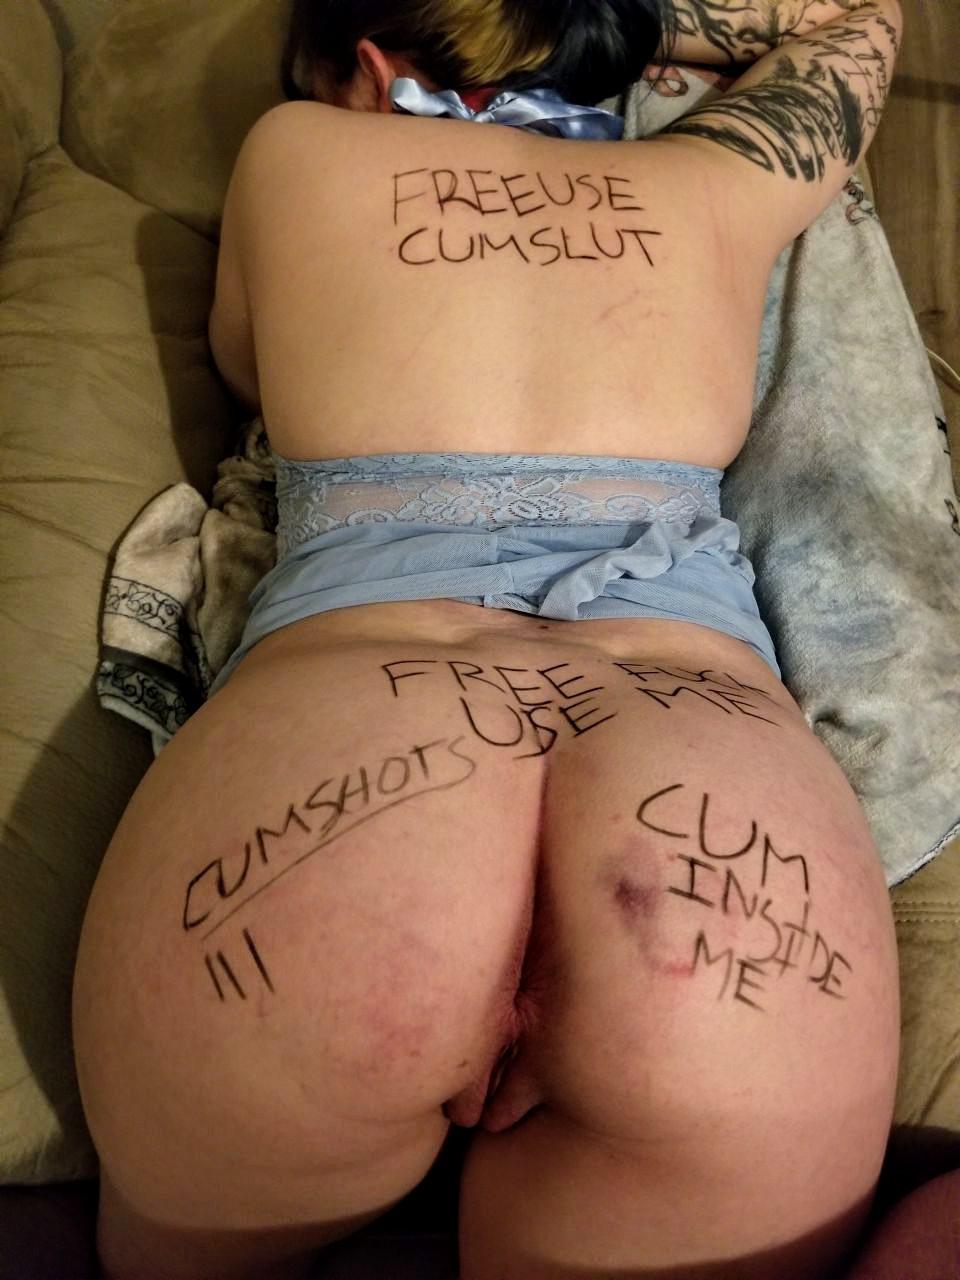 FREEUSE
CUMSLUT
FREE FUCK
USE ME
CUMSHOTS
III
CUM
INSIDE
ME